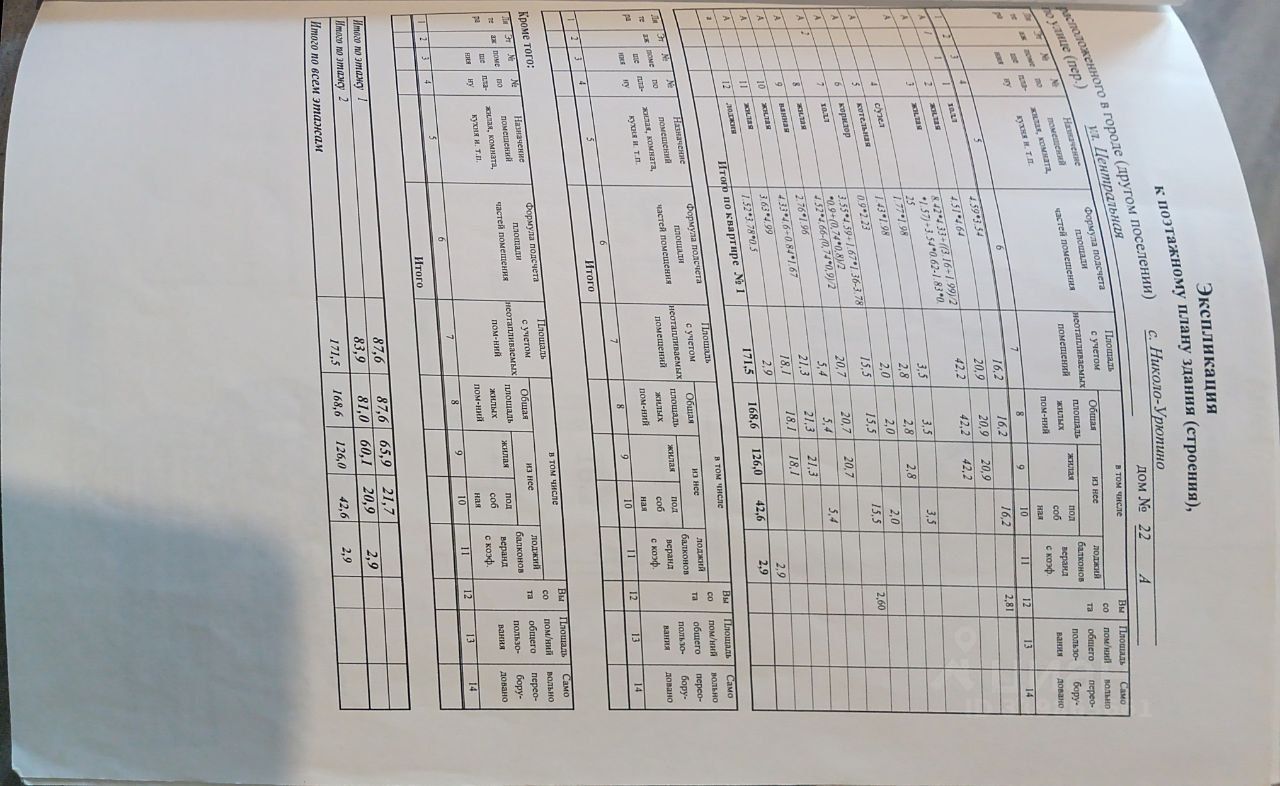 Экспликация
к поэтажному плану здания (строения),
расположенного в городе (другом поселении) с. Николо-Урюпино
по улице (пер.) ул. Центральная дом № 22 А
Ли те ра | Эт аж | № поме ще ния | № по пла- ну | Назначение помещений жилая, комната, кухня и. т.п. | Формула подсчета площади частей помещения | Площадь с учетом неотапливаемых помещений | Общая площадь жилых пом-ний | в том числе | из нее | жилая | под соб ная | лоджий балконов веранд с коэф. | Вы со та | Площадь пом/ний общего пользо- вания | Само вольно перео- бору- довано
1 2 3 4 5 6 7 8 9 10 11 12 13 14
А 1 1 1 холл 4.59*3.54 16,2 16,2 16,2 2,81
А 2 жилая 4.51*4.64 20,9 20,9 20,9
А 3 жилая 8.42*4.33+((3.16+1.99)/2 *1.57)+3.54*0.62-1.83*0. 25 42,2 42,2 42,2
А 4 с/узел 1.77*1.98 3,5 3,5 3,5
А 5 котельная 1.43*1.98 2,8 2,8 2,8
А 6 коридор 0.9*2.23 2,0 2,0 2,0
А 2 7 холл 3.55*4.59-1.67*1.36-3.78 *0.9+(0.74*0.8)/2 15,5 15,5 15,5 2,60
А 8 жилая 4.52*4.66-(0.74*0.9)/2 20,7 20,7 20,7
А 9 ванная 2.76*1.96 5,4 5,4 5,4
А 10 жилая 4.33*4.6+0.84*1.67 21,3 21,3 21,3
А 11 жилая 3.63*4.99 18,1 18,1 18,1
а 12 лоджия 1.52*3.78*0.5 2,9 2,9
Итого по квартире № 1 171,5 168,6 126,0 42,6 2,9
Ли те ра | Эт аж | № поме ще ния | № по пла- ну | Назначение помещений жилая, комната, кухня и. т.п. | Формула подсчета площади частей помещения | Площадь с учетом неотапливаемых помещений | Общая площадь жилых пом-ний | в том числе | из нее | жилая | под соб ная | лоджий балконов веранд с коэф. | Вы со та | Площадь пом/ний общего пользо- вания | Само вольно перео- бору- довано
1 2 3 4 5 6 7 8 9 10 11 12 13 14
Итого
Кроме того:
Ли те ра | Эт аж | № поме ще ния | № по пла- ну | Назначение помещений жилая, комната, кухня и. т.п. | Формула подсчета площади частей помещения | Площадь с учетом неотапливаемых пом-ний | Общая площадь жилых пом-ний | в том числе | из нее | жилая | под соб ная | лоджий балконов веранд с коэф. | Вы со та | Площадь пом/ний общего пользо- вания | Само вольно перео- бору- довано
1 2 3 4 5 6 7 8 9 10 11 12 13 14
Итого
Итого по этажу 1 87,6 87,6 65,9 21,7
Итого по этажу 2 83,9 81,0 60,1 20,9 2,9
Итого по всем этажам 171,5 168,6 126,0 42,6 2,9